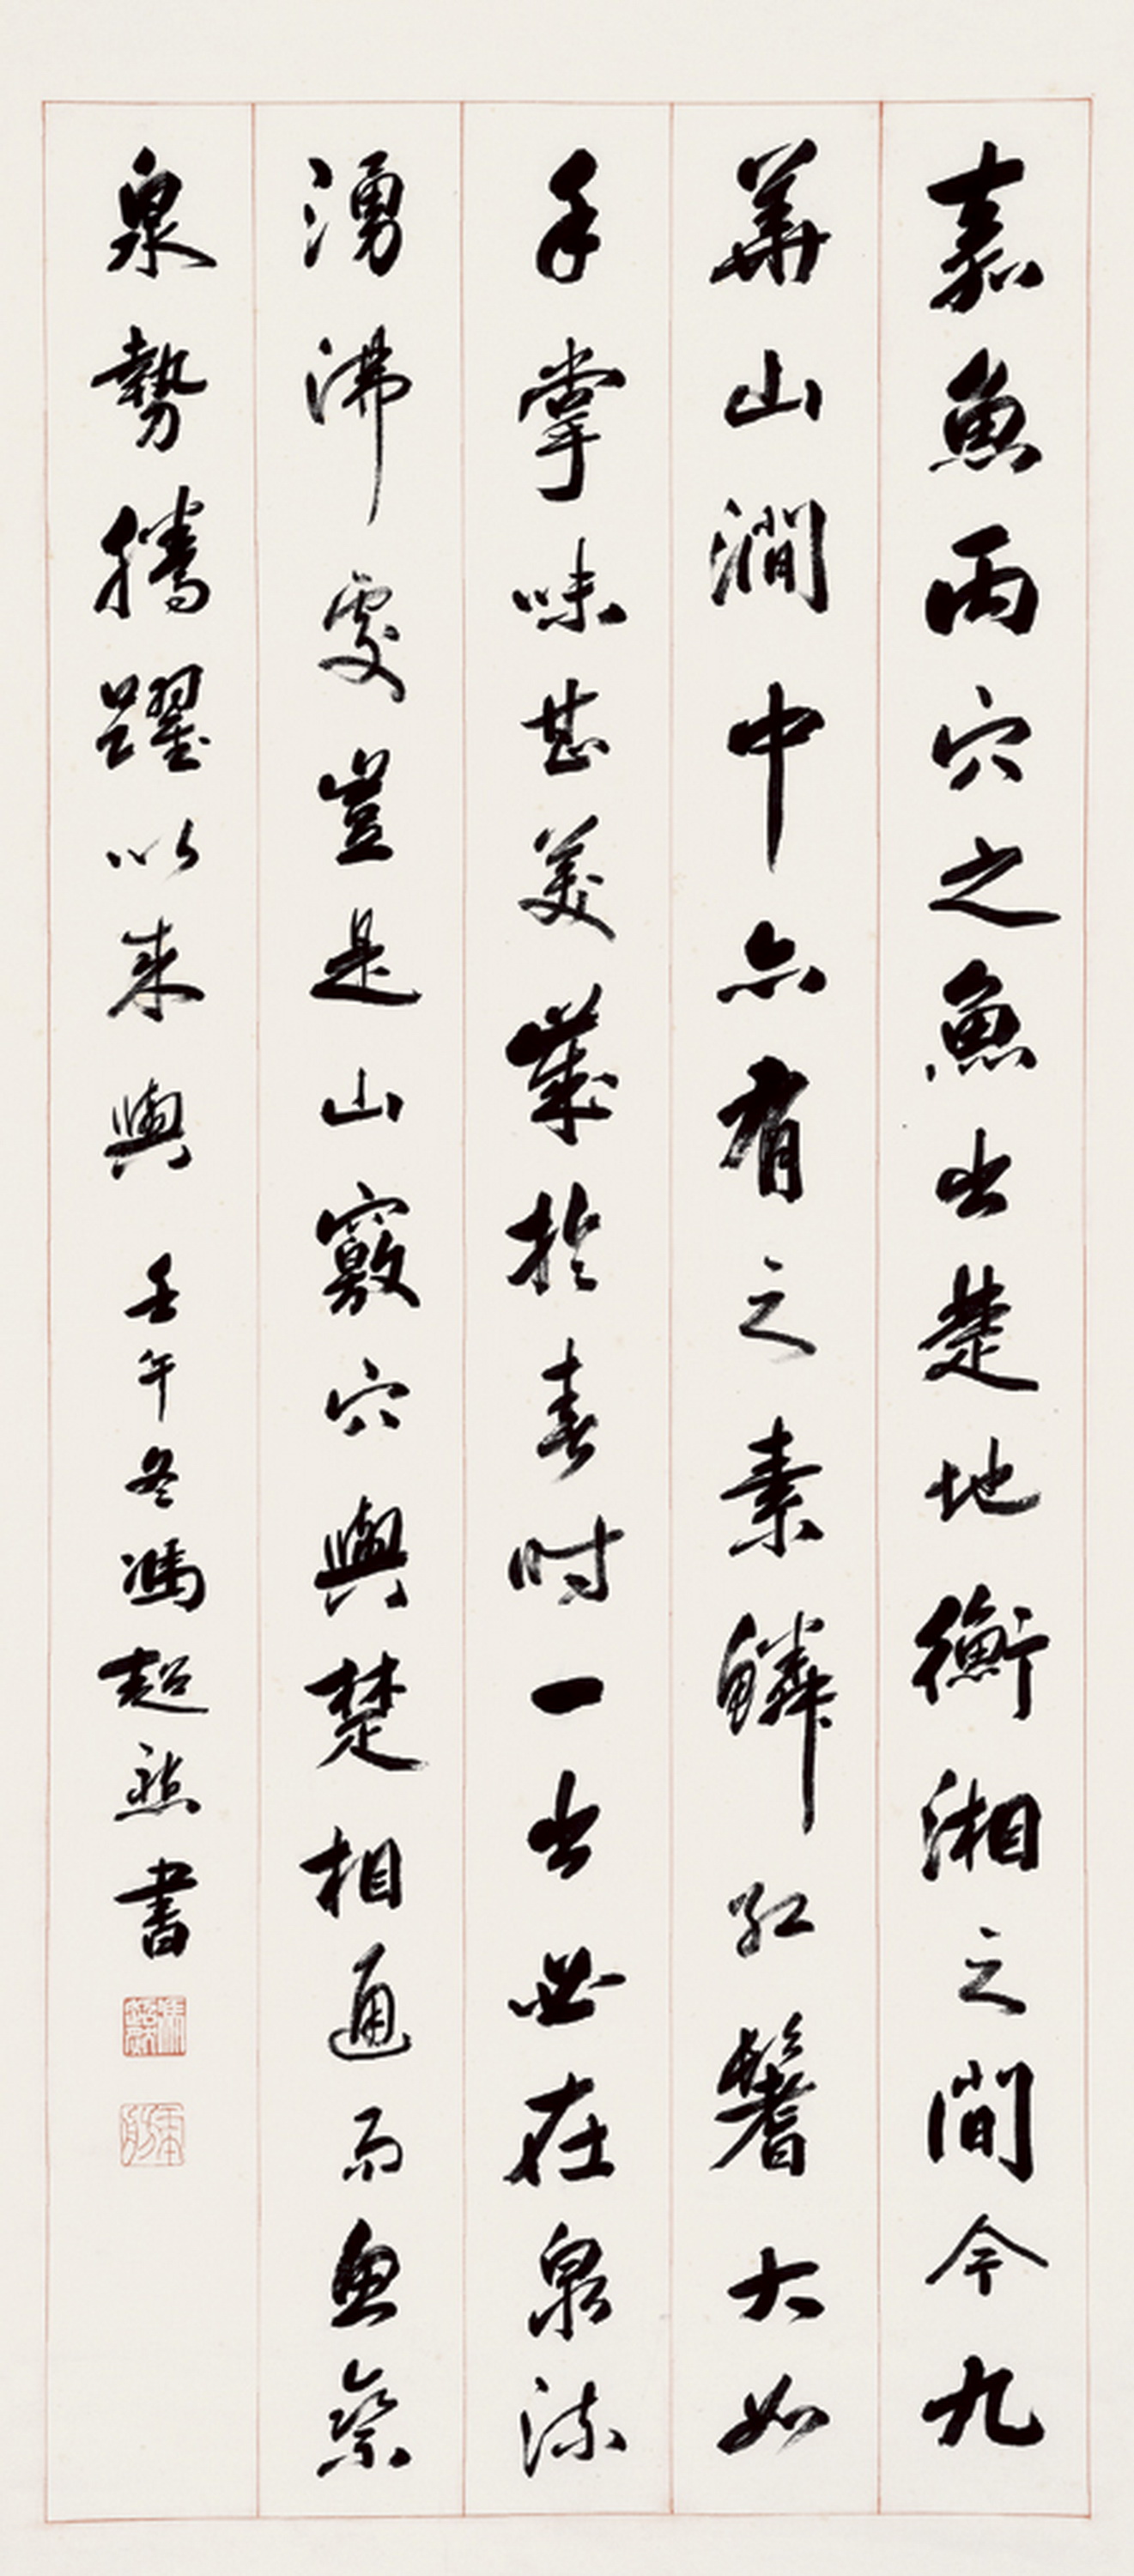 嘉魚丙穴之魚出楚地衡湘之間今九
華山澗中亦有之素鱗紅鬐大如
手掌味甚美歲於春時一出必在泉流
湧沸處豈是山竅穴與楚相通而魚乘
泉勢騰躍以來與
壬午冬馮超然書